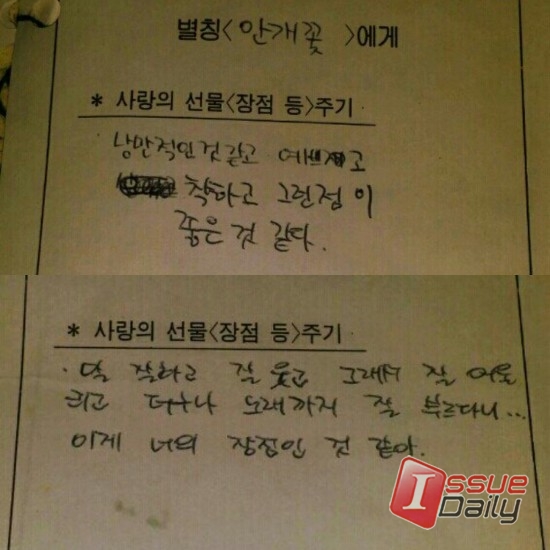 별칭<안개꽃 >에게
* 사랑의 선물<장점 등>주기
낭만적인것같고 예쁘고
착하고 그런점이
좋은 것 같다.
* 사랑의 선물<장점 등>주기
· 말 잘하고 잘 웃고 그래서 잘 어울
리고 더구나 노래까지 잘 부르다니...
이게 너의 장점인 것 같아.
Issue
Daily